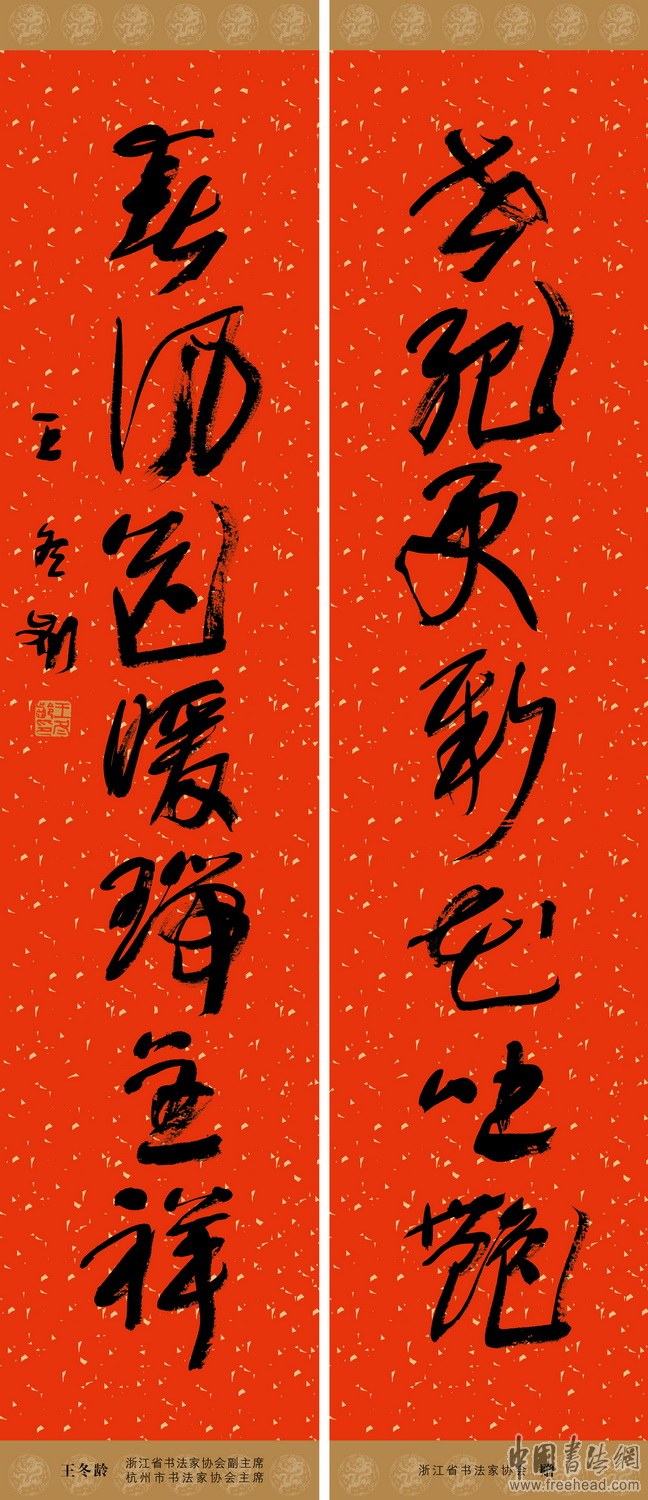 世紀更新花吐艷
春風送暖瑞呈祥
王冬齡
王冬龄
浙江省书法家协会副主席
杭州市书法家协会主席
浙江省书法家协会 赠
中国書法網
www.freehead.com